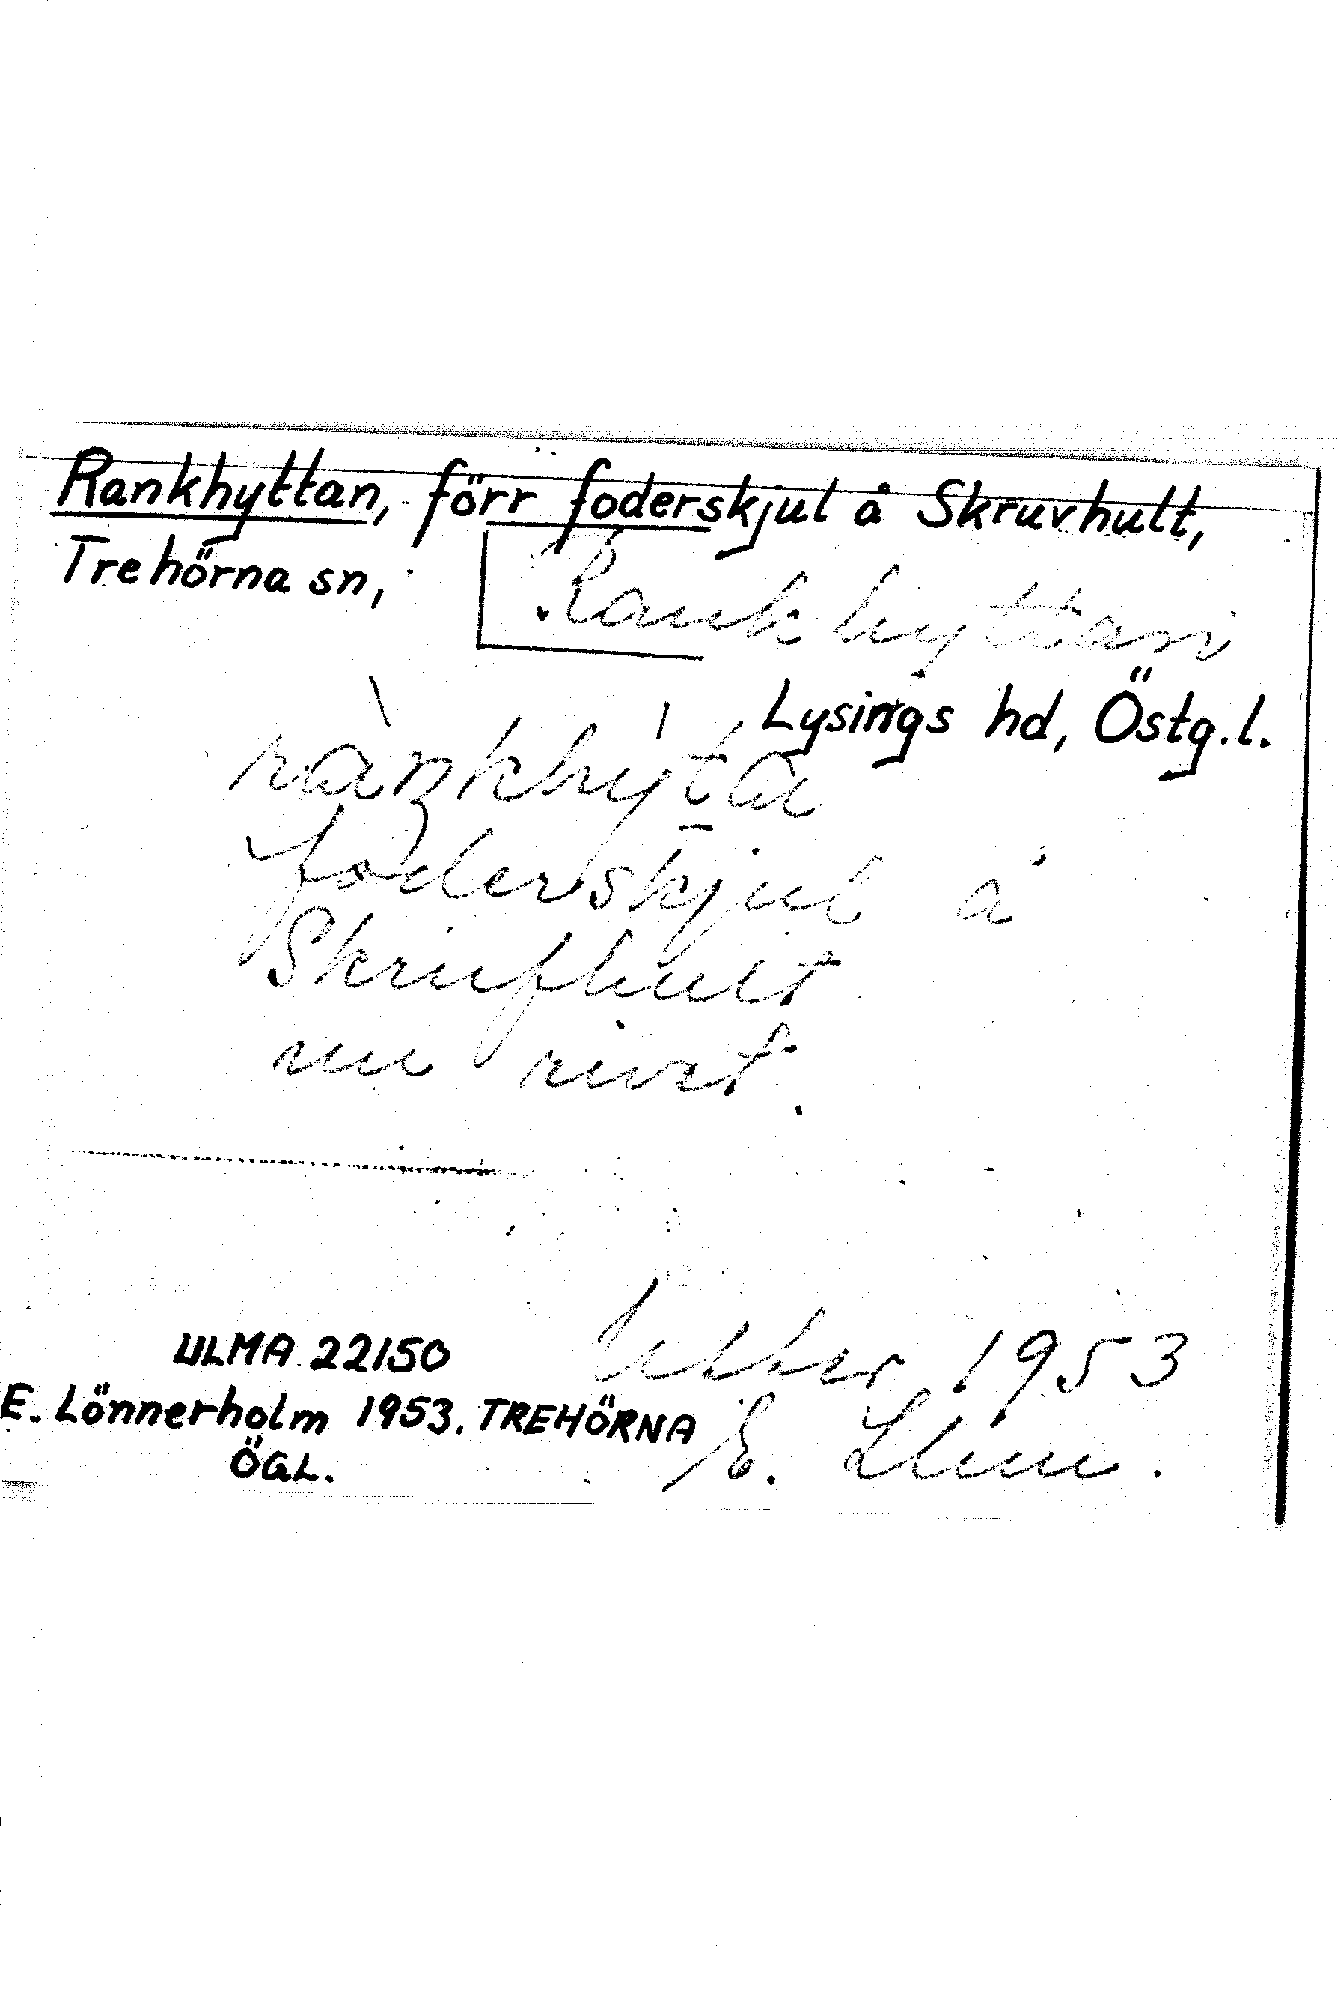 Rankhyttan, förr foderskjul å Skruvhult,
Trehörna sn,
Rankhyttan
Lysings hd, Östg.l.
foderskjul å
Skrufhult
nu rivet.
ULMA 22150
E. Lönnerholm 1953. TREHÖRNA
ÖGL.
1953
E. Lhm.